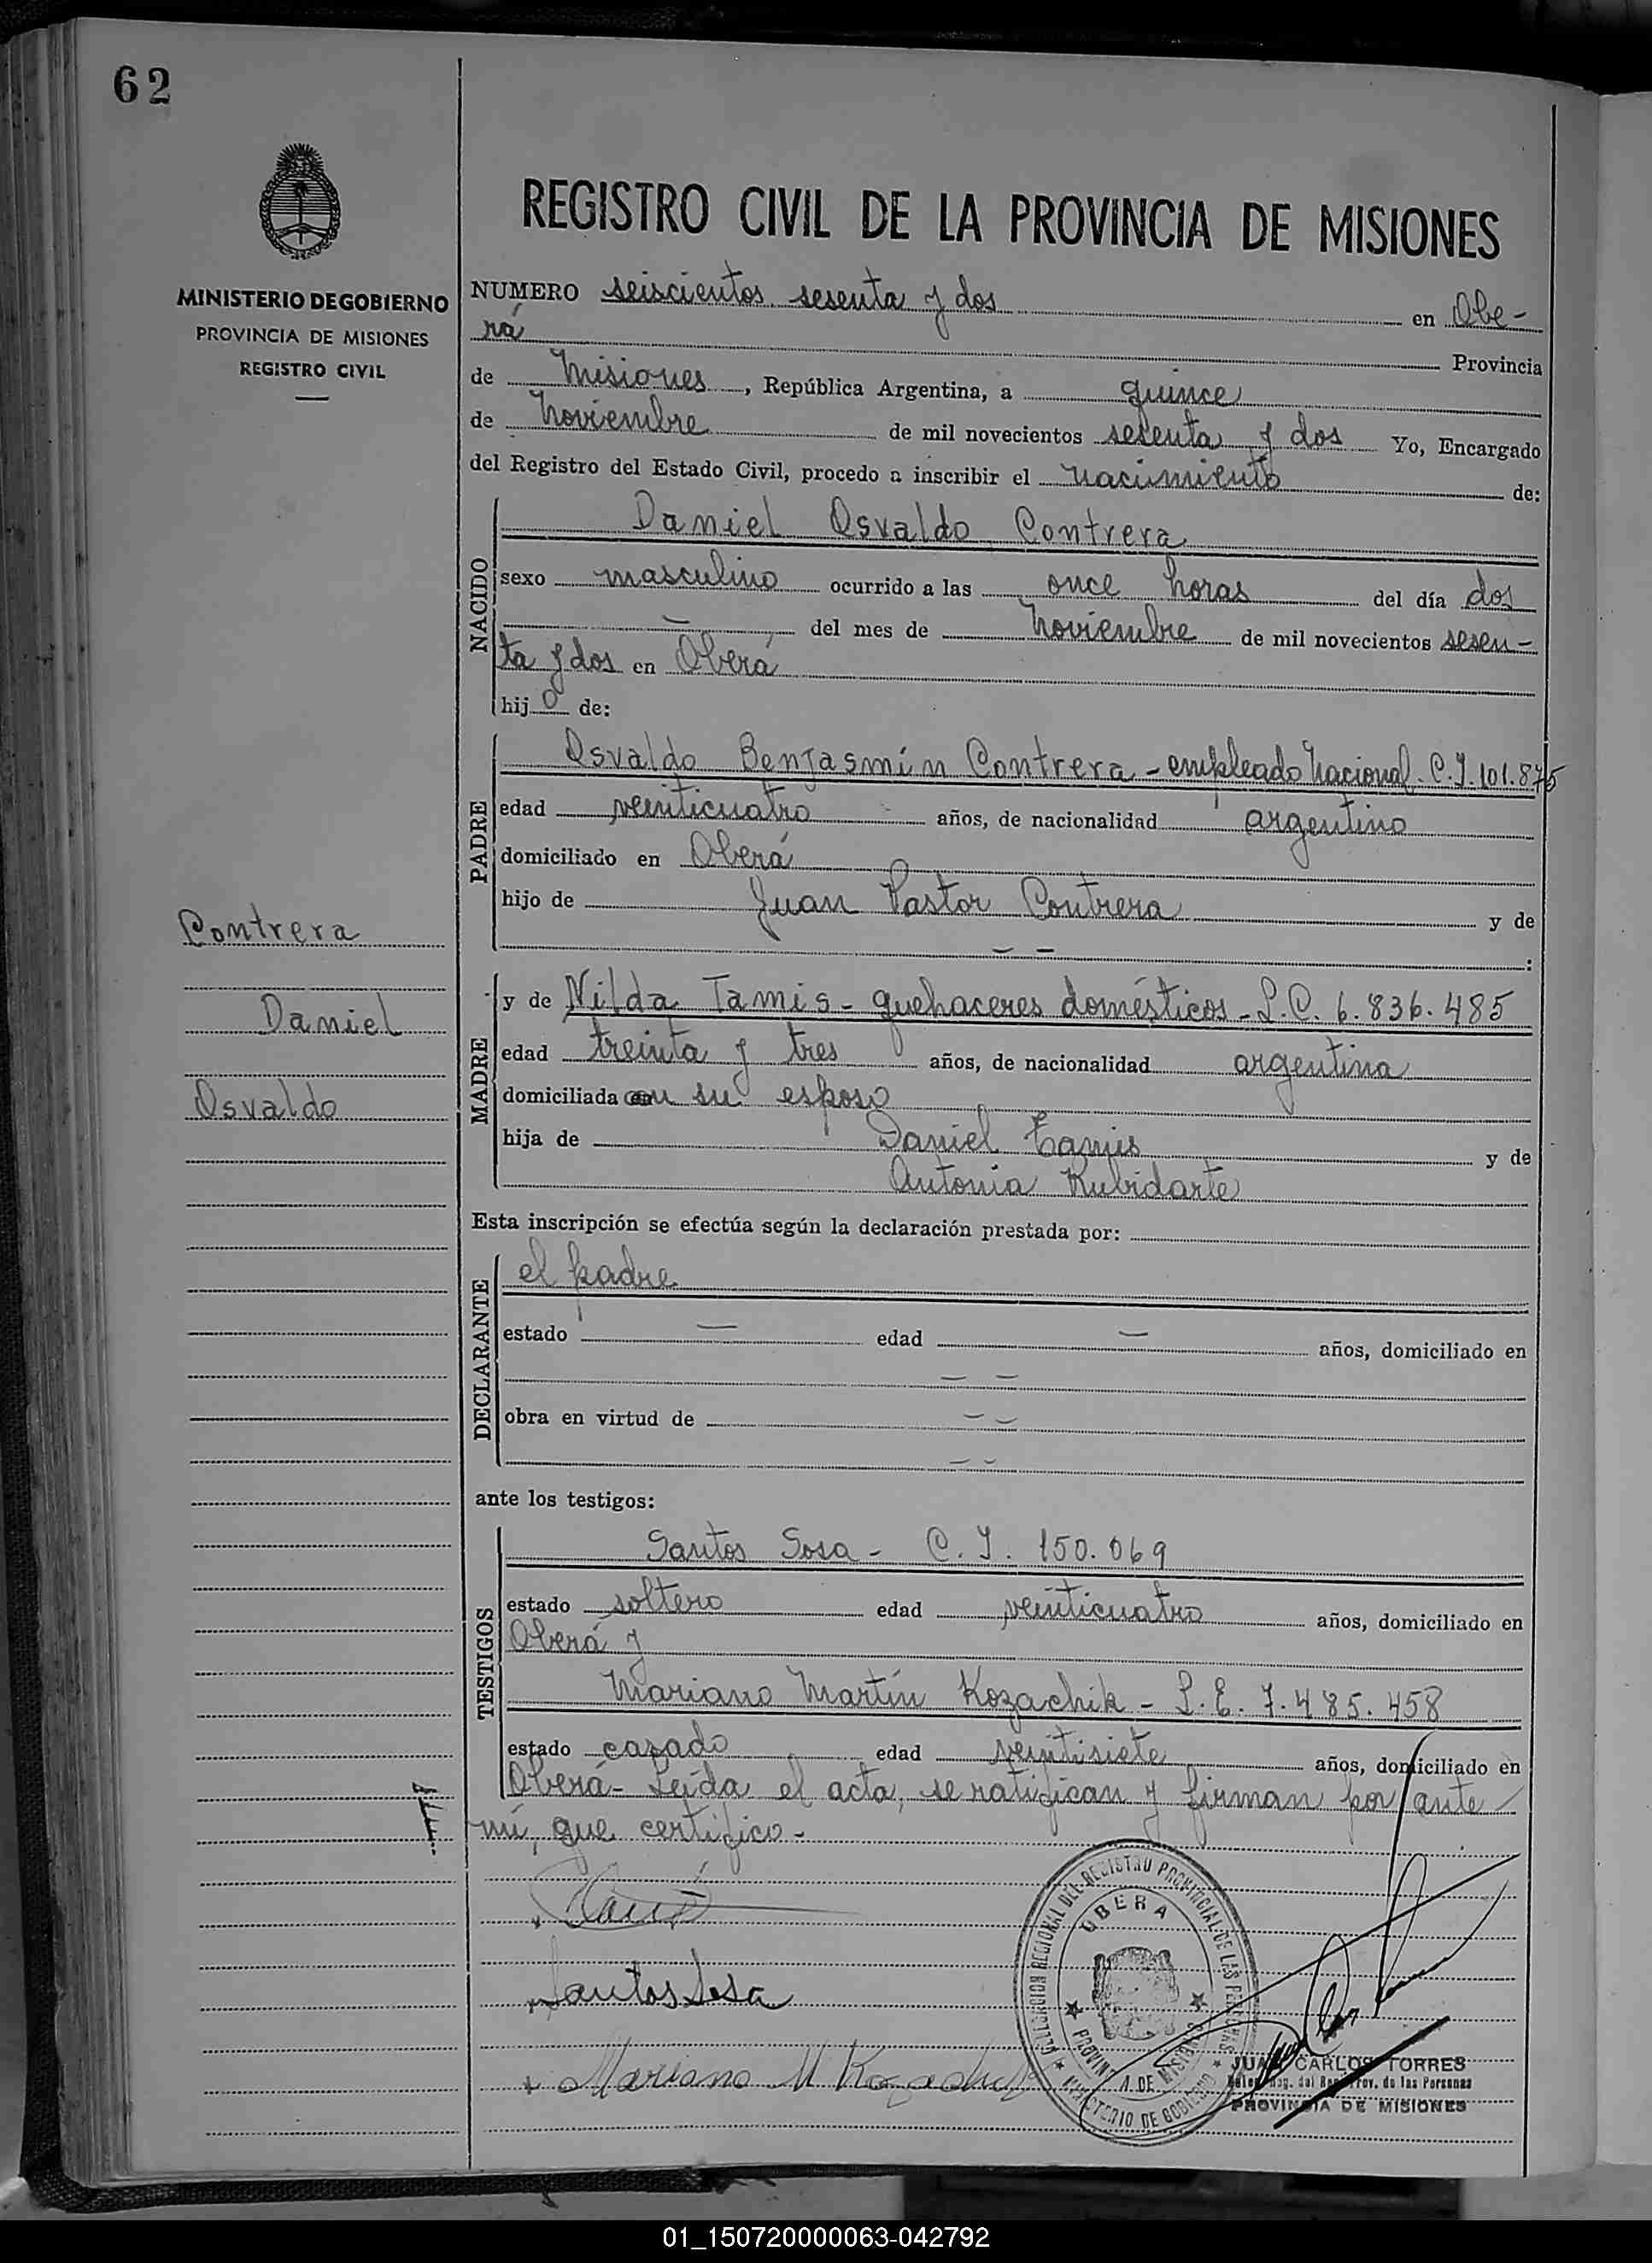 62
MINISTERIO DE GOBIERNO
PROVINCIA DE MISIONES
REGISTRO CIVIL
REGISTRO CIVIL DE LA PROVINCIA DE MISIONES
NUMERO seiscientos sesenta y dos en Obe-
rá Provincia
de Misiones, República Argentina, a quince
de Noviembre de mil novecientos sesenta y dos Yo, Encargado
del Registro del Estado Civil, procedo a inscribir el nacimiento de:
NACIDO
Daniel Osvaldo Contrera
sexo masculino ocurrido a las once horas del día dos
— del mes de Noviembre de mil novecientos sesen-
ta y dos en Oberá
hijo de:
PADRE
Osvaldo Benjasmín Contrera - empleado Nacional. C.I. 101.875
edad veinticuatro años, de nacionalidad argentino
domiciliado en Oberá
hijo de Juan Pastor Contrera y de
— — :
MADRE
y de Nilda Tamis - quehaceres domésticos - L.C. 6.836.485
edad treinta y tres años, de nacionalidad argentina
domiciliada con su esposo
hija de Daniel Tamis y de
Antonia Rubidarte
Contrera
Daniel
Osvaldo
Esta inscripción se efectúa según la declaración prestada por:
DECLARANTE
el padre
estado — edad — años, domiciliado en
— —
obra en virtud de — —
— —
ante los testigos:
TESTIGOS
Santos Sosa - C.I. 150.069
estado soltero edad veinticuatro años, domiciliado en
Oberá y
Mariano Martín Kozachik - L.E. 7.485.458
estado casado edad veintisiete años, domiciliado en
Oberá - Leída el acta, se ratifican y firman por ante
mí, que certifico.-
Santos Sosa
Mariano M Kozachik
DELEGACION REGIONAL DEL REGISTRO PROVINCIAL DE LAS PERSONAS
OBERA
PROVINCIA DE MISIONES
MINISTERIO DE GOBIERNO
JUAN CARLOS TORRES
Prov. de las Personas
PROVINCIA DE MISIONES
01_150720000063-042792